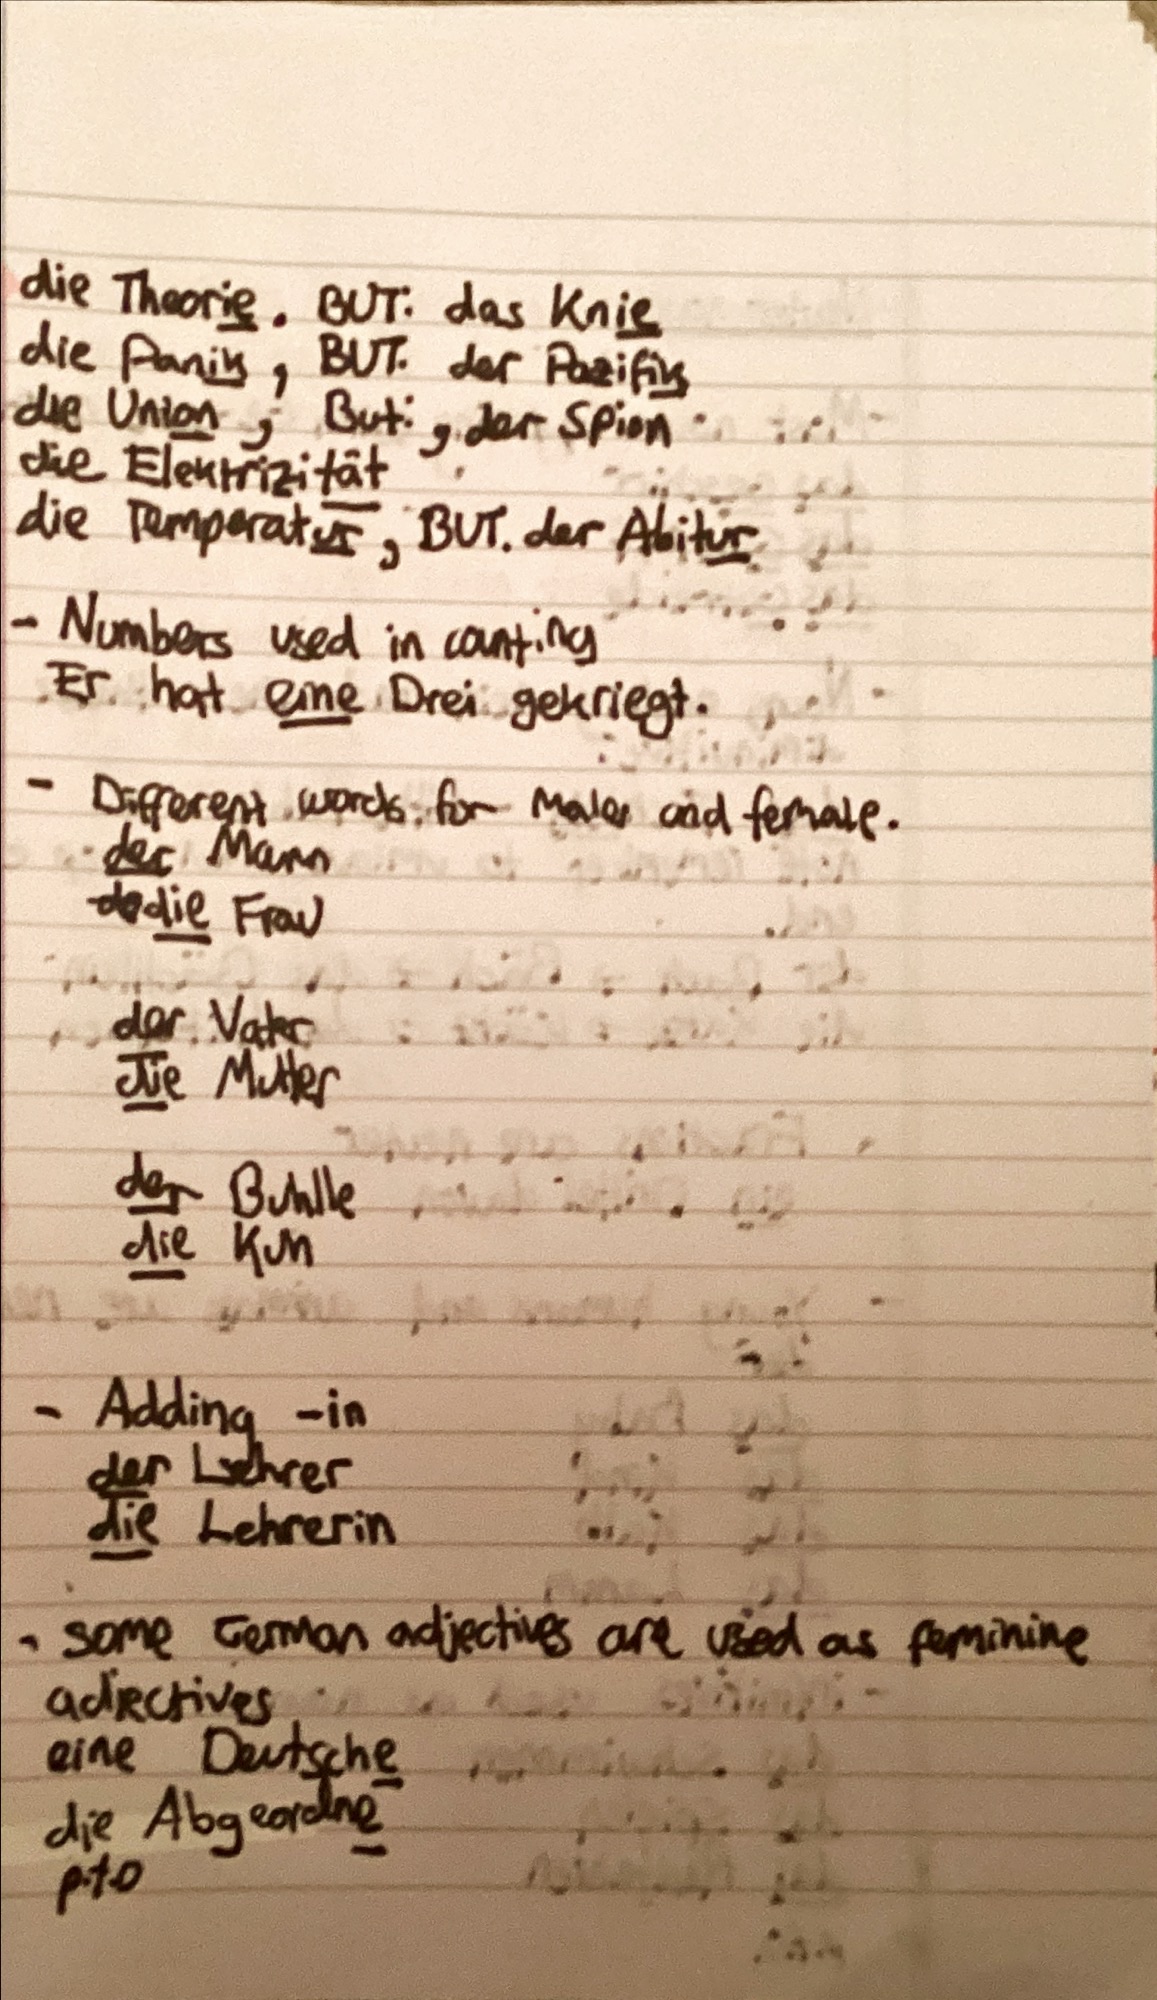 die Theorie. BUT: das Knie
die Panik, BUT. der Pazifik
die Union, But: , der Spion
die Elektrizität
die Temperatur, BUT. der Abitur
- Numbers used in counting
Er hat eine Drei gekriegt.
- Different words for Males and female.
der Mann
die Frau
der Vater
die Mutter
der Buhlle
die Kuh
- Adding -in
der Lehrer
die Lehrerin
- some German adjectives are used as feminine
adjectives
eine Deutsche
die Abgeordne
p.t.o